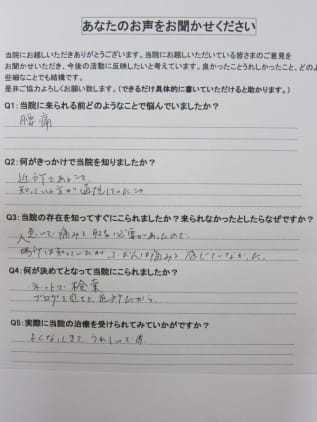 あなたのお声をお聞かせください
当院にお越しいただきありがとうございます。当院にお越しいただいている皆さまのご意見を
お聞かせいただき、今後の活動に反映したいと考えています。良かったことうれしかったこと、どのよ
些細なことでも結構です。
是非ご協力よろしくお願い致します。（できるだけ具体的に書いていただけると助かります。）
Q1:当院に来られる前どのようなことで悩んでいましたか？
腰痛
Q2:何がきっかけで当院を知りましたか？
近所であること
知り が通院していたこと
Q3:当院の存在を知ってすぐにこられましたか？来られなかったとしたらなぜですか？
急いで痛みを取る必要があったので、
場所は知っていたが、ふだんは痛みを感じていなかった。
Q4:何が決めてとなって当院にこられましたか？
ネットで検索
ブログを見てと、近所だから。
Q5:実際に当院の治療を受けられてみていかがですか？
よくなってきて うれしいです